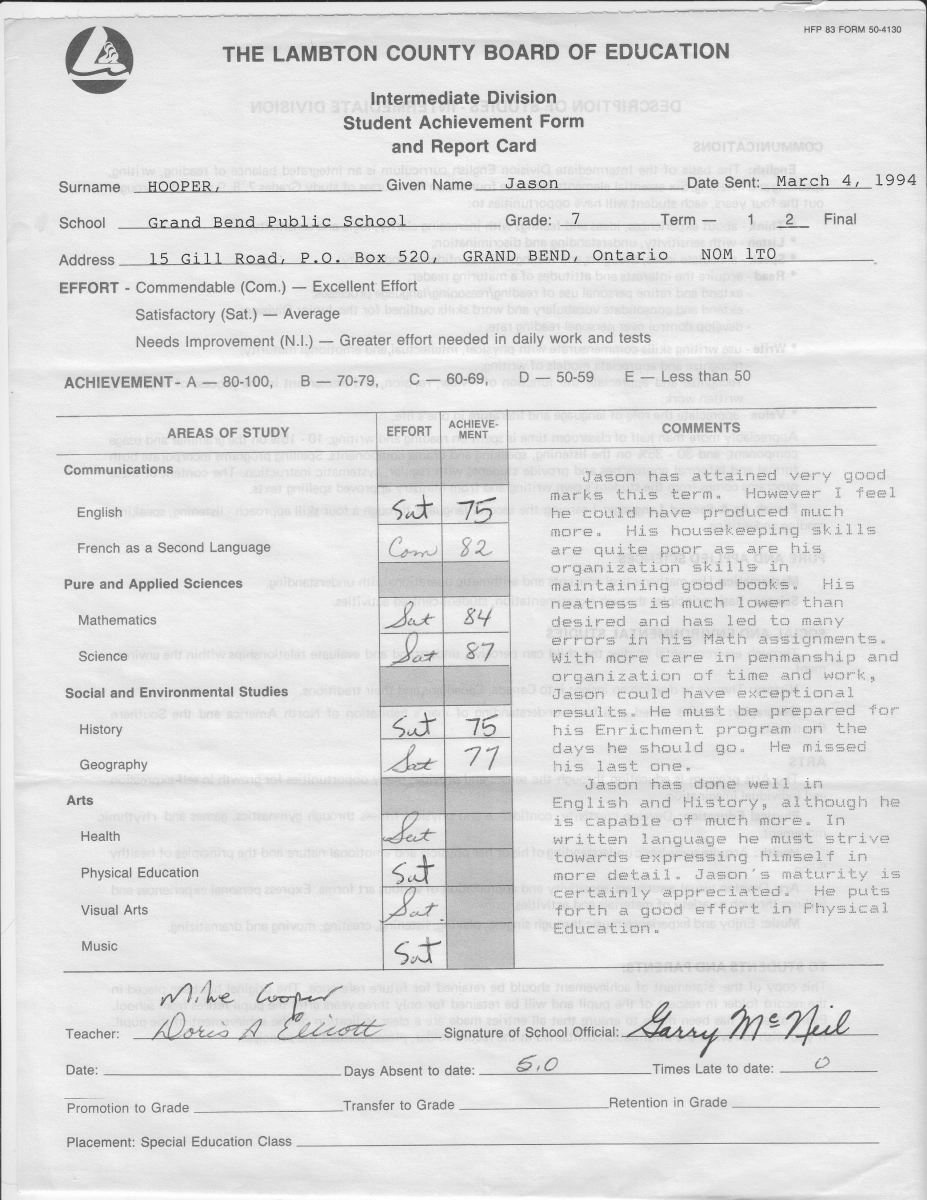 HFP 83 FORM 50-4130
THE LAMBTON COUNTY BOARD OF EDUCATION
Intermediate Division
Student Achievement Form
and Report Card
Surname HOOPER, Given Name Jason Date Sent: March 4, 1994
School Grand Bend Public School Grade: 7 Term — 1 2 Final
Address 15 Gill Road, P.O. Box 520, GRAND BEND, Ontario NOM 1TO
EFFORT - Commendable (Com.) — Excellent Effort
Satisfactory (Sat.) — Average
Needs Improvement (N.I.) — Greater effort needed in daily work and tests
ACHIEVEMENT - A — 80-100, B — 70-79, C — 60-69, D — 50-59 E — Less than 50
AREAS OF STUDY EFFORT ACHIEVE-
MENT COMMENTS
Communications
English Sat 75
French as a Second Language Com 82
Pure and Applied Sciences
Mathematics Sat 84
Science Sat 87
Social and Environmental Studies
History Sat 75
Geography Sat 77
Arts
Health Sat
Physical Education Sat
Visual Arts Sat.
Music Sat
Jason has attained very good
marks this term. However I feel
he could have produced much
more. His housekeeping skills
are quite poor as are his
organization skills in
maintaining good books. His
neatness is much lower than
desired and has led to many
errors in his Math assignments.
With more care in penmanship and
organization of time and work,
Jason could have exceptional
results. He must be prepared for
his Enrichment program on the
days he should go. He missed
his last one.
Jason has done well in
English and History, although he
is capable of much more. In
written language he must strive
towards expressing himself in
more detail. Jason's maturity is
certainly appreciated. He puts
forth a good effort in Physical
Education.
Mike Cooper
Teacher: Doris A Elliott Signature of School Official: Garry McNeil
Date: Days Absent to date: 5.0 Times Late to date: 0
Promotion to Grade Transfer to Grade Retention in Grade
Placement: Special Education Class